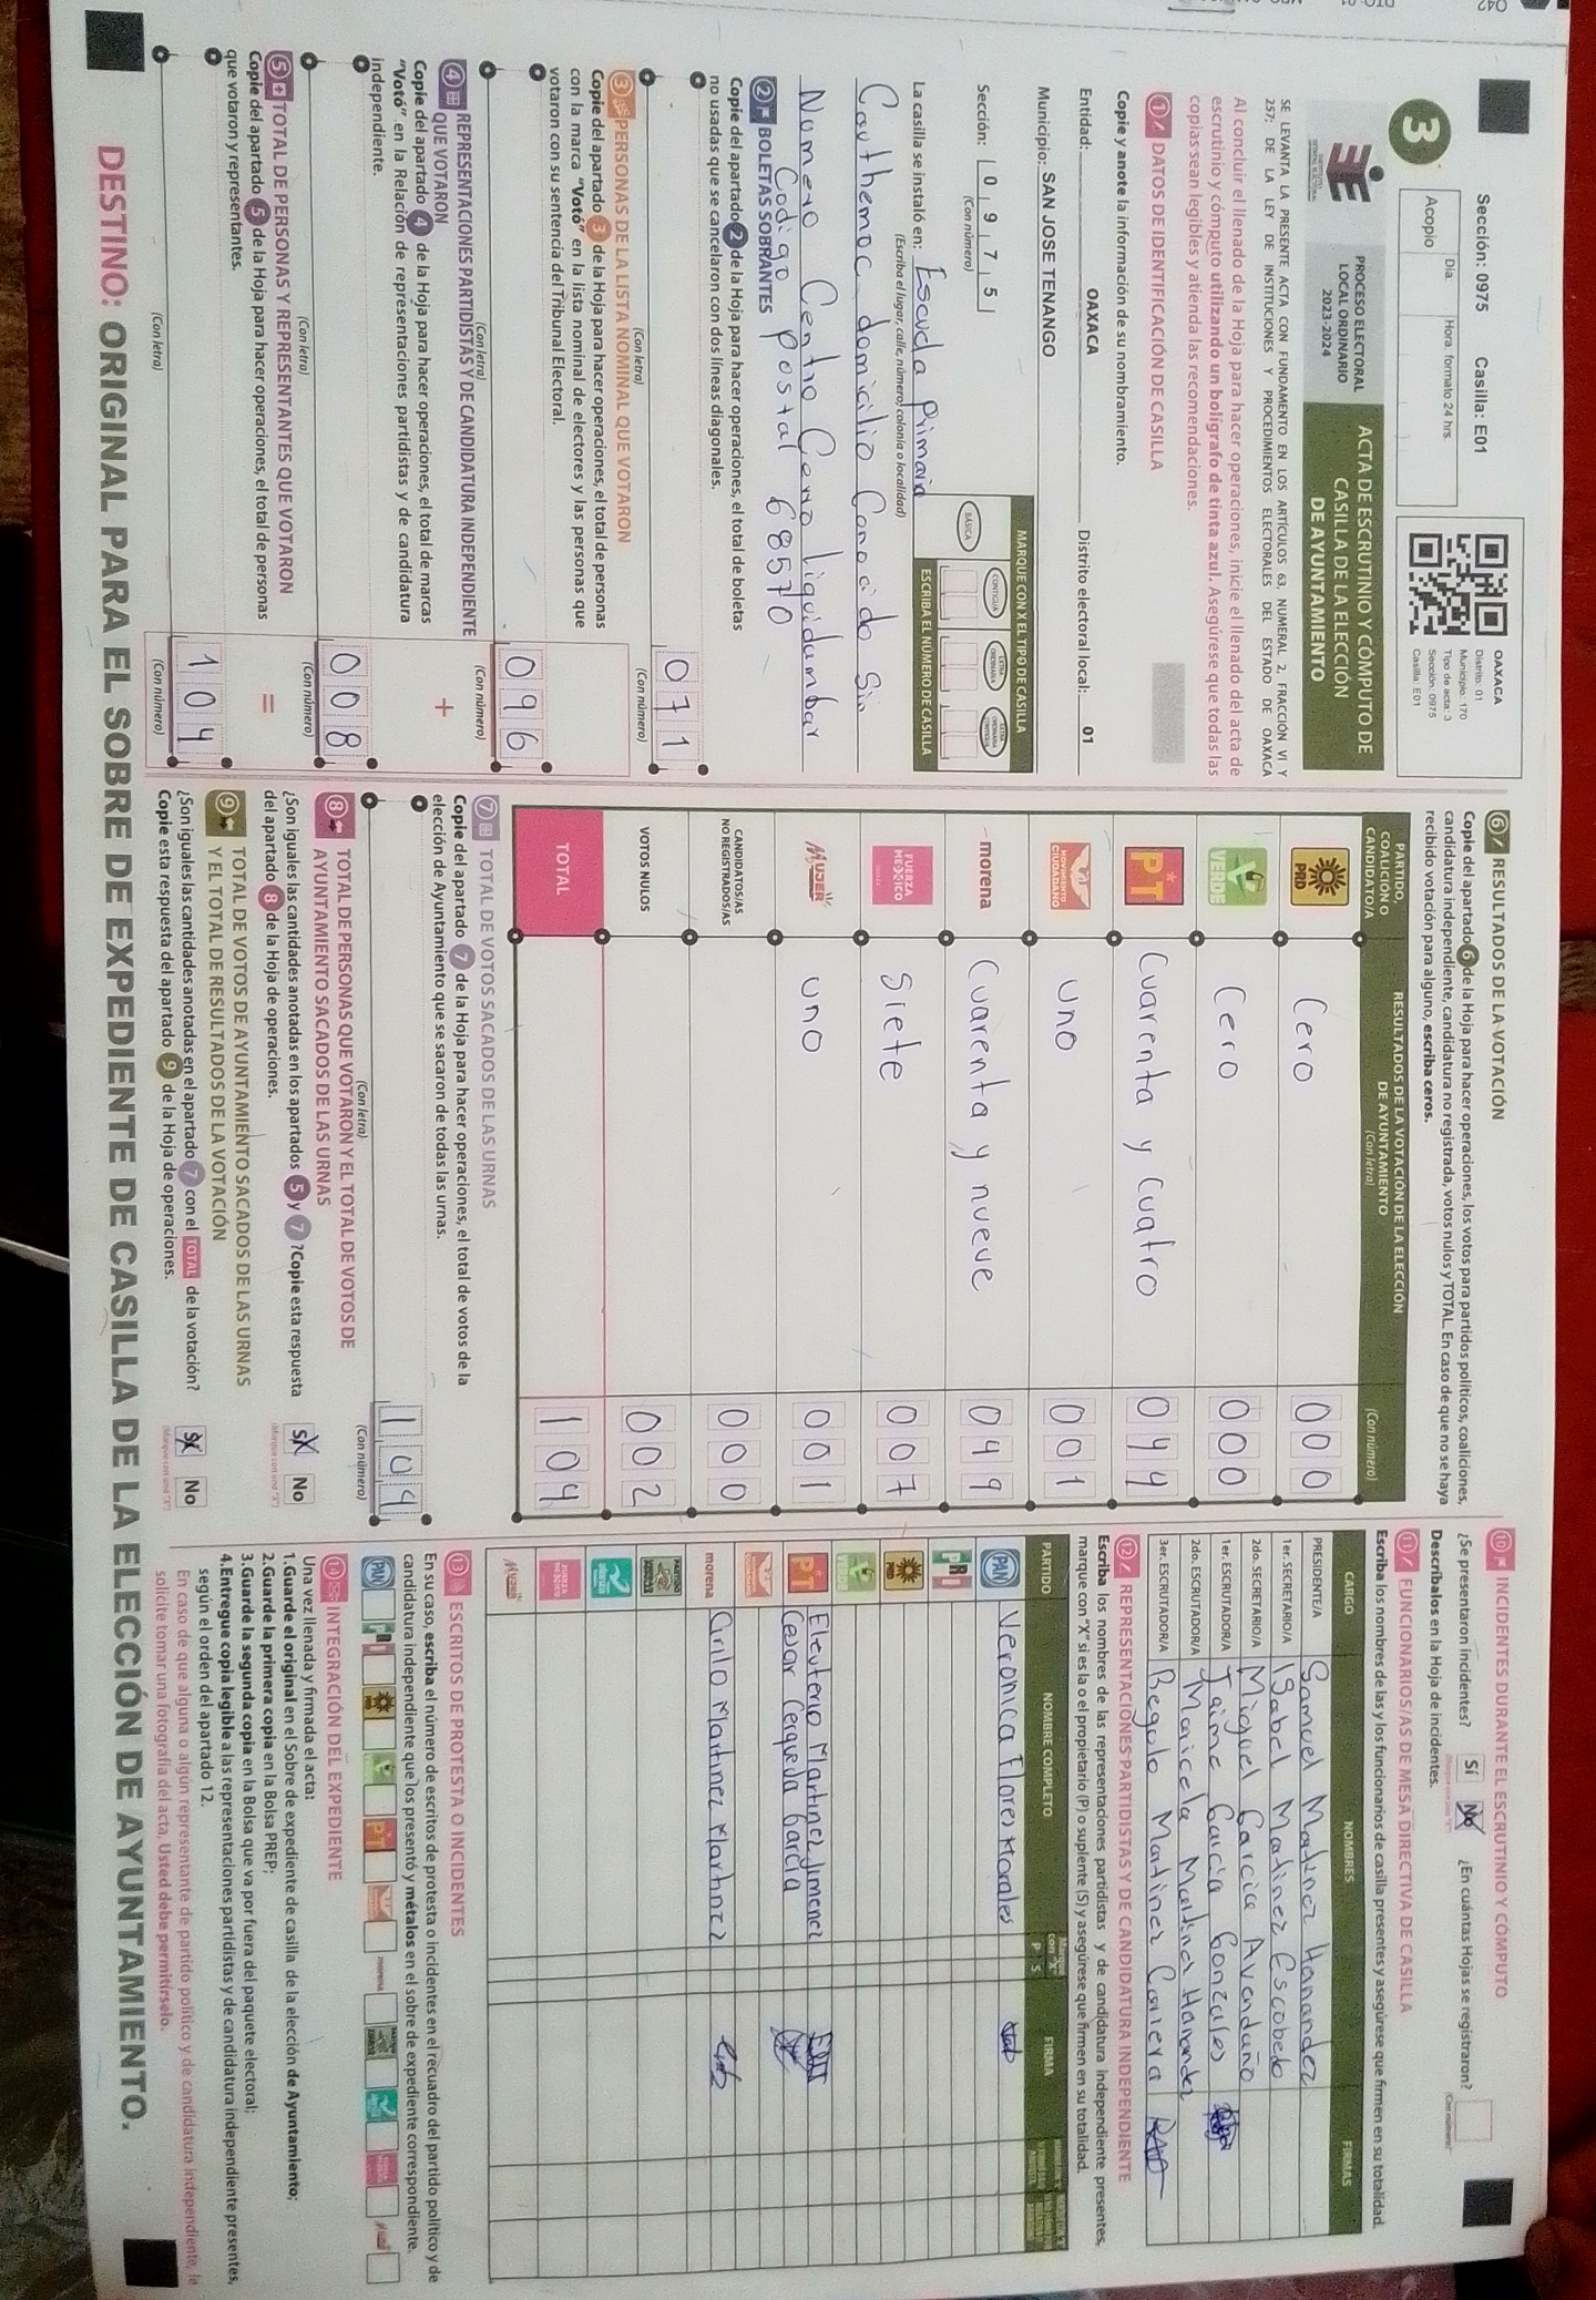 Sección: 0975 Casilla: E01
3
Día Hora formato 24 hrs
Acopio
OAXACA
Distrito: 01
Municipio: 170
Tipo de acta: 3
Sección: 0975
Casilla: E01
PROCESO ELECTORAL
LOCAL ORDINARIO
2023-2024
ACTA DE ESCRUTINIO Y CÓMPUTO DE
CASILLA DE LA ELECCIÓN
DE AYUNTAMIENTO
SE LEVANTA LA PRESENTE ACTA CON FUNDAMENTO EN LOS ARTÍCULOS 63, NUMERAL 2, FRACCIÓN VI Y
257; DE LA LEY DE INSTITUCIONES Y PROCEDIMIENTOS ELECTORALES DEL ESTADO DE OAXACA
Al concluir el llenado de la Hoja para hacer operaciones, inicie el llenado del acta de
escrutinio y cómputo utilizando un bolígrafo de tinta azul. Asegúrese que todas las
copias sean legibles y atienda las recomendaciones.
1 DATOS DE IDENTIFICACIÓN DE CASILLA
Copie y anote la información de su nombramiento.
Entidad: OAXACA Distrito electoral local: 01
Municipio: SAN JOSE TENANGO
Sección: 0 9 7 5
(Con número)
MARQUE CON X EL TIPO DE CASILLA
BÁSICA CONTIGUA EXTRAORDINARIA EXTRAORDINARIA CONTIGUA
ESCRIBA EL NÚMERO DE CASILLA
La casilla se instaló en: Escuela Primaria
(Escriba el lugar, calle, número, colonia o localidad)
Cauthemoc domicilio Conocido Sin
Numero Centro Cerro liquidambar
Codigo postal 68570
2 BOLETAS SOBRANTES
Copie del apartado 2 de la Hoja para hacer operaciones, el total de boletas
no usadas que se cancelaron con dos líneas diagonales.
071
(Con letra) (Con número)
3 PERSONAS DE LA LISTA NOMINAL QUE VOTARON
Copie del apartado 3 de la Hoja para hacer operaciones, el total de personas
con la marca "Votó" en la lista nominal de electores y las personas que
votaron con su sentencia del Tribunal Electoral.
096
(Con letra) (Con número)
4 REPRESENTACIONES PARTIDISTAS Y DE CANDIDATURA INDEPENDIENTE
QUE VOTARON
+
Copie del apartado 4 de la Hoja para hacer operaciones, el total de marcas
"Votó" en la Relación de representaciones partidistas y de candidatura
independiente.
008
(Con letra) (Con número)
5 TOTAL DE PERSONAS Y REPRESENTANTES QUE VOTARON
=
Copie del apartado 5 de la Hoja para hacer operaciones, el total de personas
que votaron y representantes.
104
(Con letra) (Con número)
6 RESULTADOS DE LA VOTACIÓN
Copie del apartado 6 de la Hoja para hacer operaciones, los votos para partidos políticos, coaliciones,
candidatura independiente, candidatura no registrada, votos nulos y TOTAL. En caso de que no se haya
recibido votación para alguno, escriba ceros.
PARTIDO,
COALICIÓN O
CANDIDATO/A
RESULTADOS DE LA VOTACIÓN DE LA ELECCIÓN
DE AYUNTAMIENTO
(Con letra) (Con número)
PRD Cero 000
VERDE Cero 000
PT Cuarenta y cuatro 044
MOVIMIENTO CIUDADANO uno 001
morena Cuarenta y nueve 049
FUERZA MÉXICO Siete 007
MUJER uno 001
CANDIDATOS/AS
NO REGISTRADOS/AS 000
VOTOS NULOS 002
TOTAL 104
7 TOTAL DE VOTOS SACADOS DE LAS URNAS
Copie del apartado 7 de la Hoja para hacer operaciones, el total de votos de la
elección de Ayuntamiento que se sacaron de todas las urnas.
104
(Con letra) (Con número)
8 TOTAL DE PERSONAS QUE VOTARON Y EL TOTAL DE VOTOS DE
AYUNTAMIENTO SACADOS DE LAS URNAS
¿Son iguales las cantidades anotadas en los apartados 5 y 7? Copie esta respuesta
del apartado 8 de la Hoja de operaciones.
Sí No
9 TOTAL DE VOTOS DE AYUNTAMIENTO SACADOS DE LAS URNAS
Y EL TOTAL DE RESULTADOS DE LA VOTACIÓN
¿Son iguales las cantidades anotadas en el apartado 7 con el TOTAL de la votación?
Copie esta respuesta del apartado 9 de la Hoja de operaciones.
Sí No
10 INCIDENTES DURANTE EL ESCRUTINIO Y CÓMPUTO
¿Se presentaron incidentes? Sí No ¿En cuántas Hojas se registraron?
Descríbalos en la Hoja de incidentes.
11 FUNCIONARIOS/AS DE MESA DIRECTIVA DE CASILLA
Escriba los nombres de las y los funcionarios de casilla presentes y asegúrese que firmen en su totalidad.
CARGO NOMBRES FIRMAS
PRESIDENTE/A Samuel Matinez Hanandez
1er. SECRETARIO/A Isabel Matinez Escobedo
2do. SECRETARIO/A Miguel Garcia Avendaño
1er. ESCRUTADOR/A Jaime Garcia Gonzales
2do. ESCRUTADOR/A Maricela Martinez Hanandez
3er. ESCRUTADOR/A Regulo Matinez Carrera
12 REPRESENTACIONES PARTIDISTAS Y DE CANDIDATURA INDEPENDIENTE
Escriba los nombres de las representaciones partidistas y de candidatura independiente presentes,
marque con "X" si es la o el propietario (P) o suplente (S) y asegúrese que firmen en su totalidad.
PARTIDO NOMBRE COMPLETO Marque con "X" P S FIRMA
PAN Veronica Flores Morales
PRI
PRD
VERDE
PT Eleuterio Martinez Jimenez
Cesar Cerqueda Garcia
MOVIMIENTO CIUDADANO
morena Cirilo Martinez Martinez
FUERZA MÉXICO
MUJER
13 ESCRITOS DE PROTESTA O INCIDENTES
En su caso, escriba el número de escritos de protesta o incidentes en el recuadro del partido político y de
candidatura independiente que los presentó y métalos en el sobre de expediente correspondiente.
PAN PRI PRD VERDE PT morena
14 INTEGRACIÓN DEL EXPEDIENTE
Una vez llenada y firmada el acta:
1. Guarde el original en el Sobre de expediente de casilla de la elección de Ayuntamiento;
2. Guarde la primera copia en la Bolsa PREP;
3. Guarde la segunda copia en la Bolsa que va por fuera del paquete electoral;
4. Entregue copia legible a las representaciones partidistas y de candidatura independiente presentes,
según el orden del apartado 12.
En caso de que alguna o algún representante de partido político y de candidatura independiente, le
solicite tomar una fotografía del acta, Usted debe permitírselo.
DESTINO: ORIGINAL PARA EL SOBRE DE EXPEDIENTE DE CASILLA DE LA ELECCIÓN DE AYUNTAMIENTO.